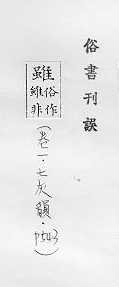 俗書刊誤
雖
俗作
維非
(卷一．七灰韻．p543)